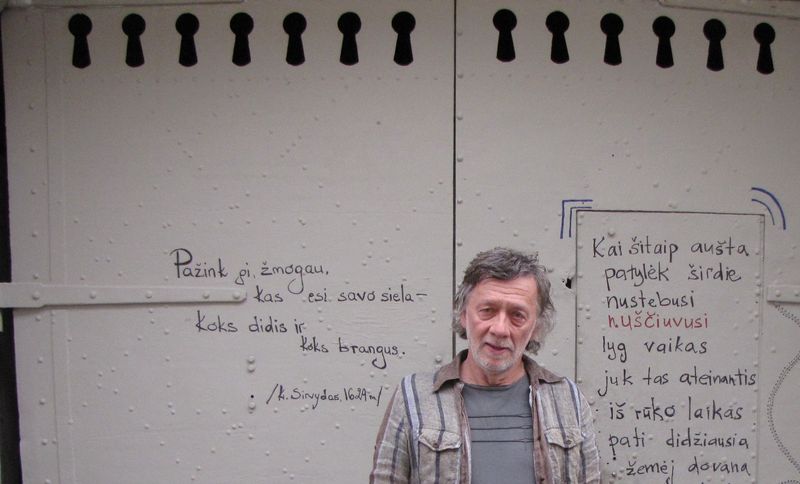 Pažink gi, žmogau,
kas esi savo siela –
koks didis ir
koks brangus.
/K. Sirvydas. 1629 m/
Kai šitaip aušta
patylėk širdie
nustebusi
nuščiuvusi
lyg vaikas
juk tas ateinantis
iš rūko laikas
pati didžiausia
žemėj dovana